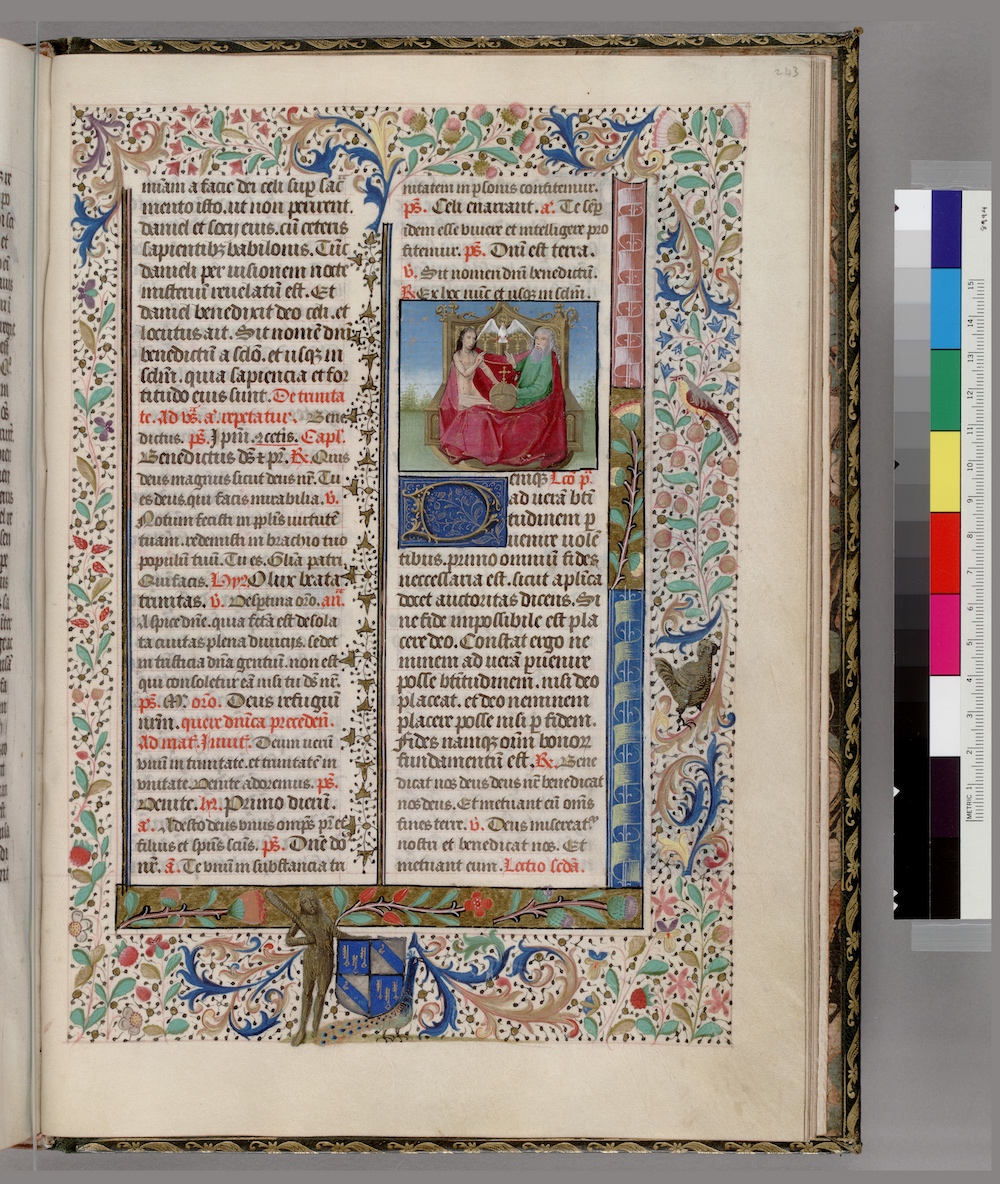 243
miam a facie dei celi sup sac̄
mento isto. ut non perirent
daniel et socij eius. cū ceteris
sapientibz babilonis. Tūc
danieli per uisionem nocte
misteriū reuelatū est. Et
daniel benedixit deo celi. et
locutus ait. Sit nomē dn̄i
benedictū a sclō. et usqz in
sclm̄. quia sapiencia et for
titudo eius sunt. De trinita
te. Ad vs̄. a. repetatur. Bene
dictus. ps̄. I prīn. Capl.
Benedictus ds̄ et pr̄. R. Quis
deus magnus sicut deus nr̄. Tu
es deus. qui facis mirabilia. v.
Notum fecisti in pplis uirtutē
tuam. redemisti in brachio tuo
populū tuū. Tu es. Glīa patri.
Qui facis. Hyr O lux beata
trinitas. v. Vesptina oro. añ.
Aspice dn̄e. quia fctā est desola
ta ciuitas plena diuicijs. sedet
in tristicia dn̄a gentiū. non est
qui consoletur eā nisi tu ds̄ nr̄.
ps̄. M. oro. Deus refugiū
nrm̄. quere dn̄ica preceden̄.
Ad mat. Inuit. Deum uerū
vnū in trinitate. et trinitatē in
vnitate. Venite adoremus. ps̄.
Venite. hr. Primo dierū.
a. Adesto deus vnus omps̄ pr̄ et
filius et spūs scūs. ps̄. Dn̄e do
nr̄. a. Te vnū in substancia tri
nitatem in psonis confitemur.
ps̄. Celi enarrant. a. Te semp
idem esse viuere et intelligere pro
fitemur. ps̄. Dn̄i est terra.
v. Sit nomen dn̄i benedictū.
R. Ex hoc nūc et usqz in sclm̄.
Cuiqz Lco pͣ.
ad uerā btī
tudinem p
uenire uolē
tibus. primo omniū fides
neccessaria est. sicut aplīca
docet auctoritas dicens. Si
ne fide impossibile est pla
cere deo. Constat ergo ne
minem ad uerā puenire
posse btītudinem. nisi deo
placeat. et deo neminem
placere posse nisi p fidem.
Fides namqz oim̄ bonorr
fundamentū est. R. Bene
dicat nos deus deus nr̄ benedicat
nos deus. Et metuant eū om̄s
fines terre. v. Deus misereatr
nostri et benedicat nos. Et
metuant eum. Lectio scda.
METRIC 1 2 3 4 5 6 7 8 9 10 11 12 13 14 15